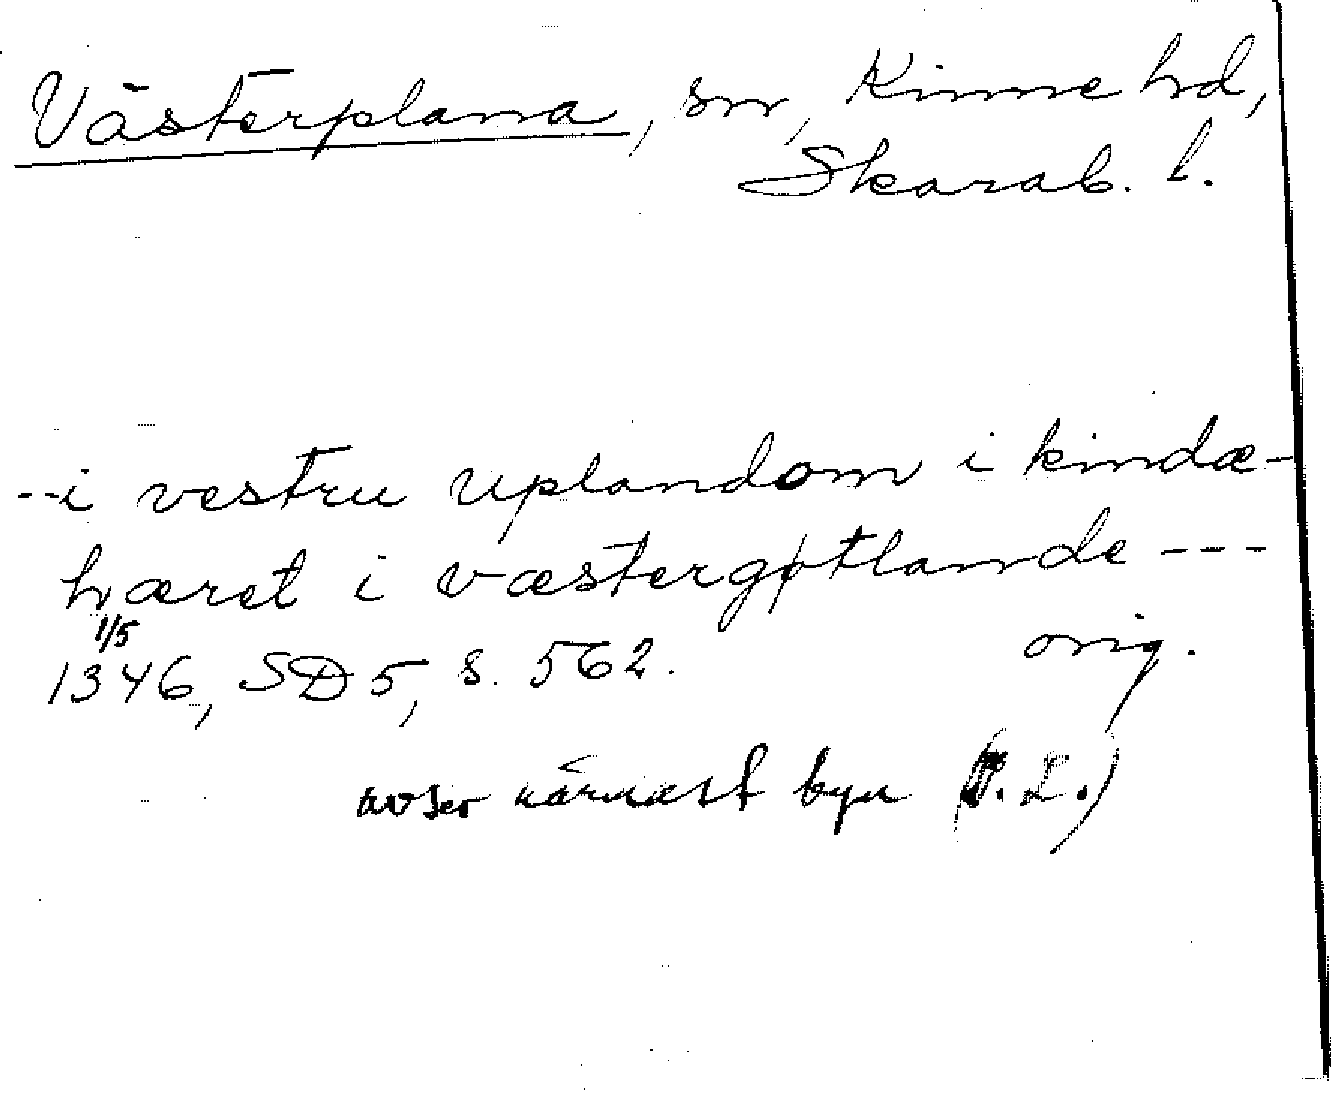 Västerplana, sn, Kinne hd,
Skarab. l.
--i vestru uplandom i kindæ-
hæret i væstergøtlande ---
1/5
1346, SD 5, s. 562. orig.
avser närmast byn ( . L.)